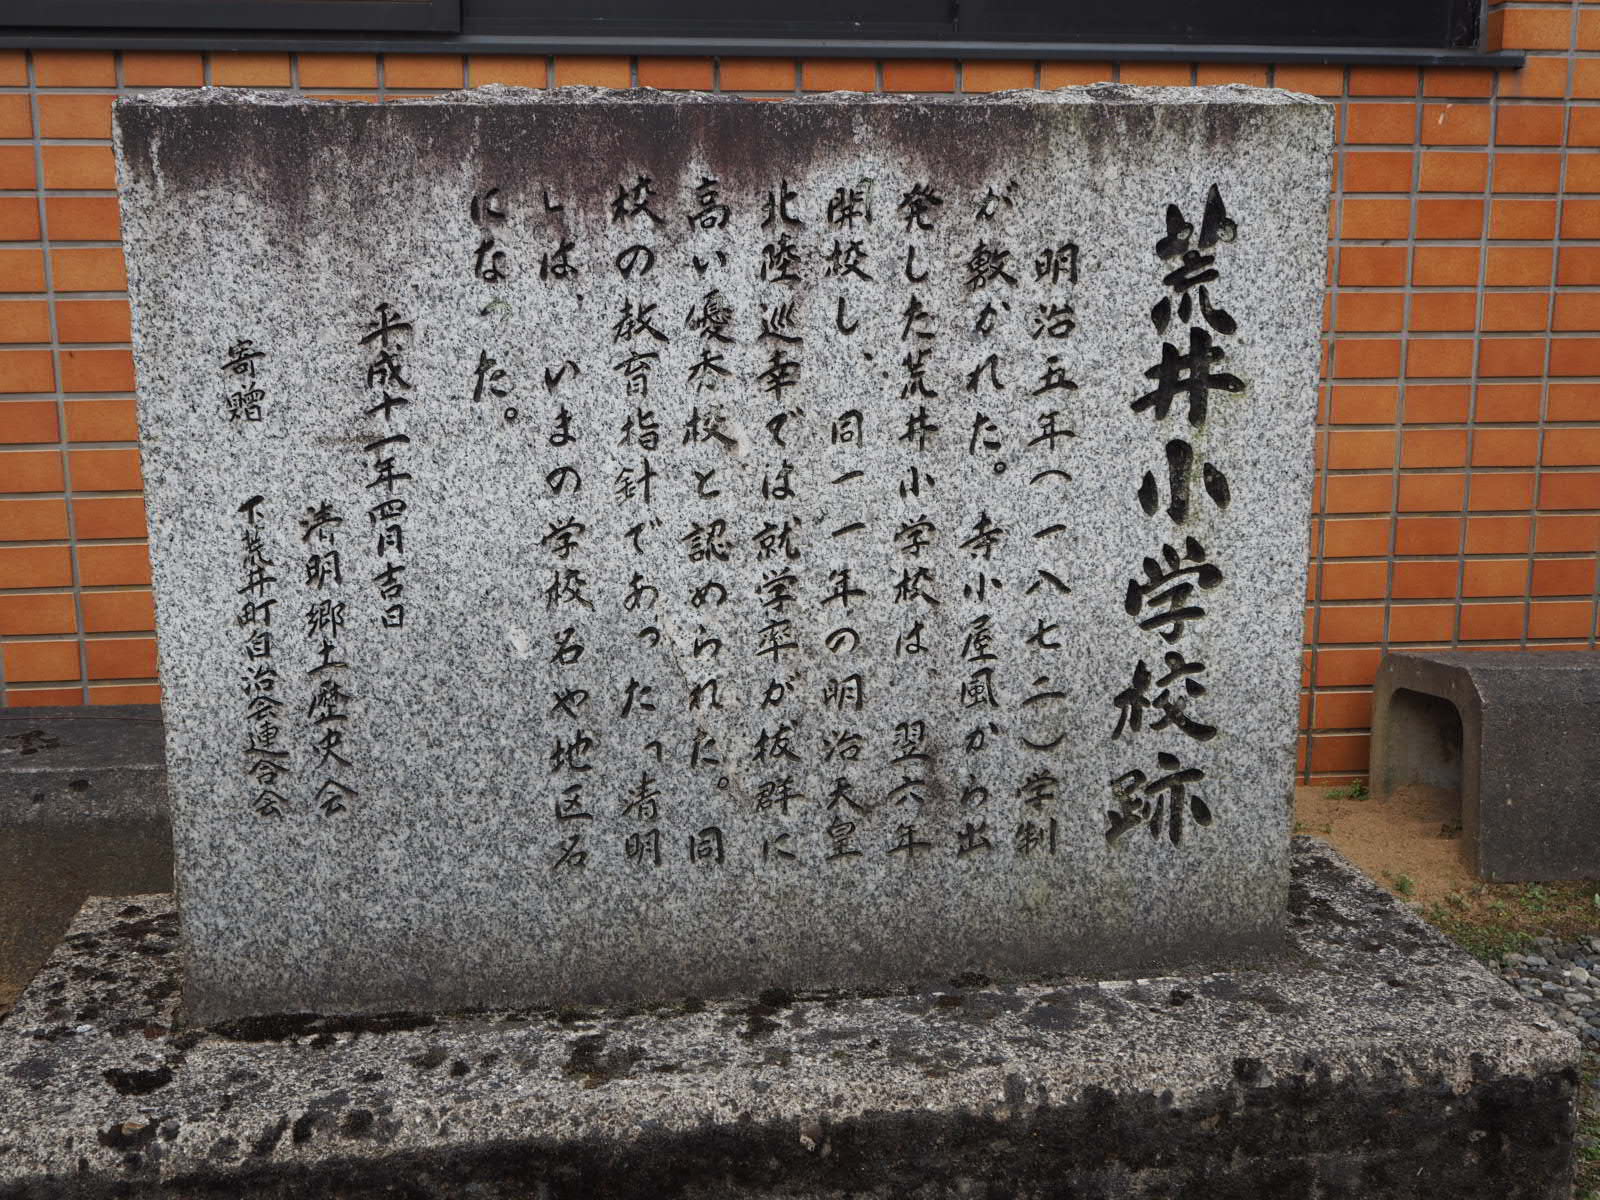 荒井小学校跡
明治五年（一八七二）学制
が敷かれた。寺小屋風から出
発した荒井小学校は、翌六年
開校し、同一一年の明治天皇
北陸巡幸では就学率が抜群に
高い優秀校と認められた。同
校の教育指針であった「清明
」は、いまの学校名や地区名
になった。
平成十一年四月吉日
清明郷土歴史会
寄贈 下荒井町自治会連合会